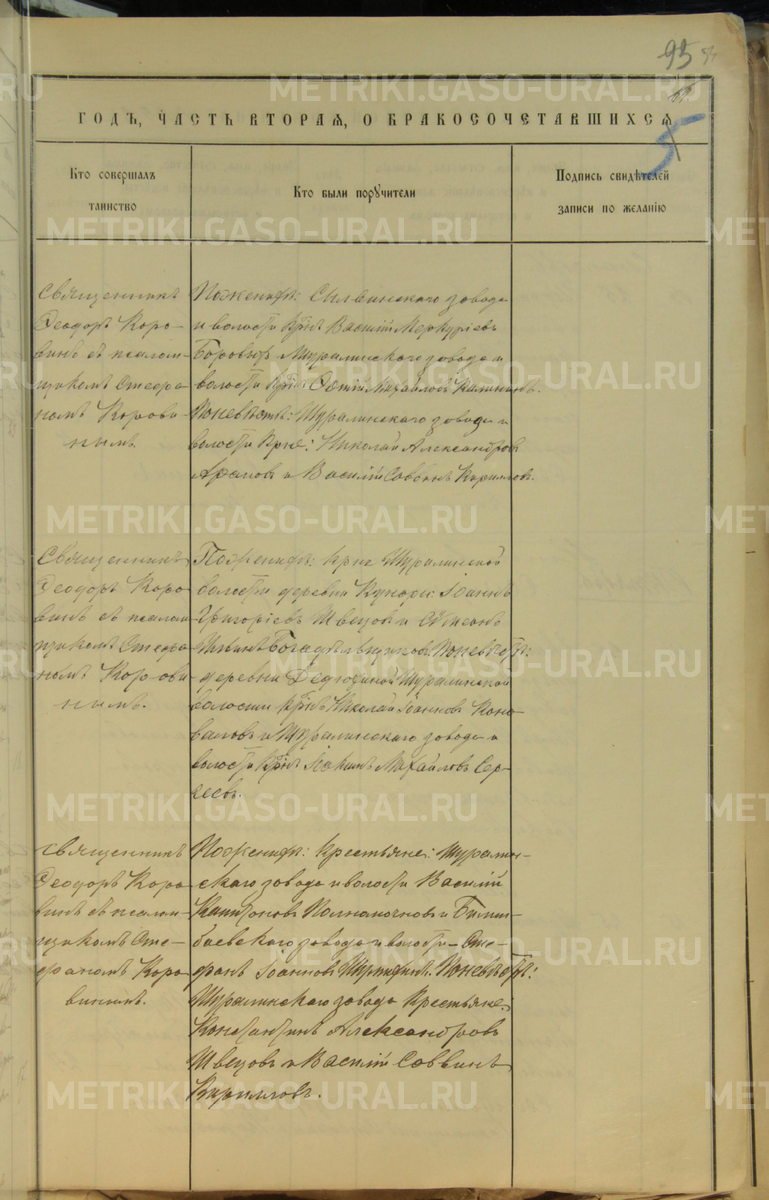 95
ГОДЪ, ЧАСТЬ ВТОРАЯ, О БРАКОСОЧЕТАВШИХСЯ
Кто совершалъ таинство
Кто были поручители
Подпись свидѣтелей записи по желанію
Священникъ
Ѳеодоръ Коро-
винъ съ псалом-
щикомъ Стефа-
номъ Корови-
нымъ.
По женихѣ: Сылвинскаго завода
и волости крн. Василій Меркуріевъ
и Шуралинскаго завода и
волости Михайловъ
По невѣстѣ: Шуралинскаго завода и
волости крне: Николай Александровъ
и Василій Саввинъ Кирилловъ.
Священникъ
Ѳеодоръ Коро-
винъ съ псалом-
щикомъ Стефа-
номъ Корови-
нымъ.
По женихѣ: крне Шуралинской
волости деревни Кунары: Іоаннъ
Григоріевъ Швецовъ и
Богадѣльщиковъ. По невѣстѣ:
деревни Федюхиной Шуралинской
волости Николай Іоанновъ Коно-
валовъ и Шуралинскаго завода и
волости Михайловъ Сер-
геевъ.
Священникъ
Ѳеодоръ Коро-
винъ съ псалом-
щикомъ Сте-
фаномъ Коро-
винымъ.
По женихѣ: Крестьяне: Шуралин-
скаго завода и волости Василій
и Билим-
баевскаго завода и волости Сте-
фанъ Іоанновъ По невѣстѣ:
Шуралинскаго завода Крестьяне:
Константинъ Александровъ
Швецовъ и Василій Саввинъ
Кирилловъ.
METRIKI.GASO-URAL.RU